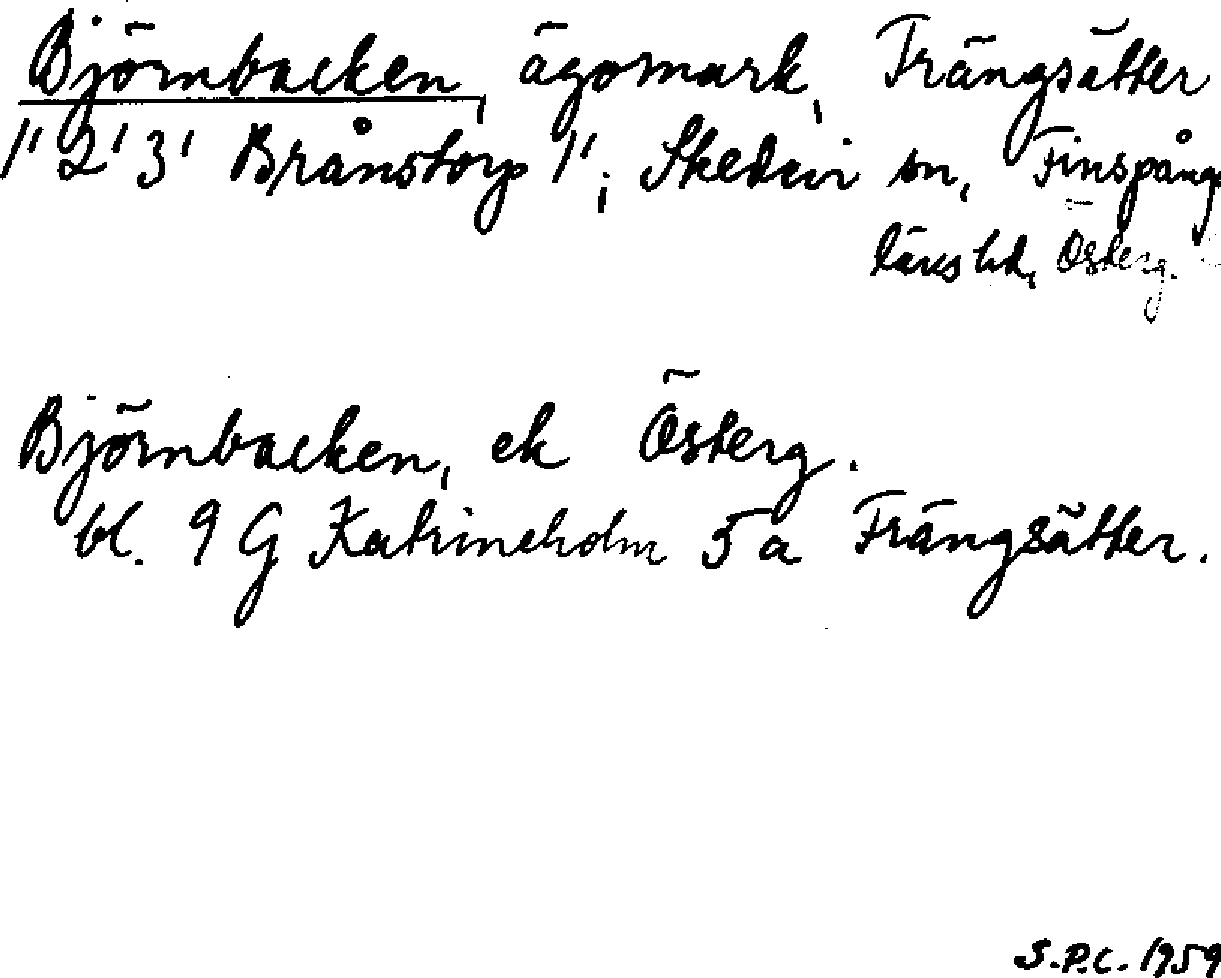 Björnbacken, ägomark, Frängsätter
1' 2' 3' Brånstorp 1'; Skedevi sn, Finspånga
läns hd, Österg.
Björnbacken, ek Österg.
bl. 9 G Katrineholm 5 a Frängsätter.
S.P.C. 1959